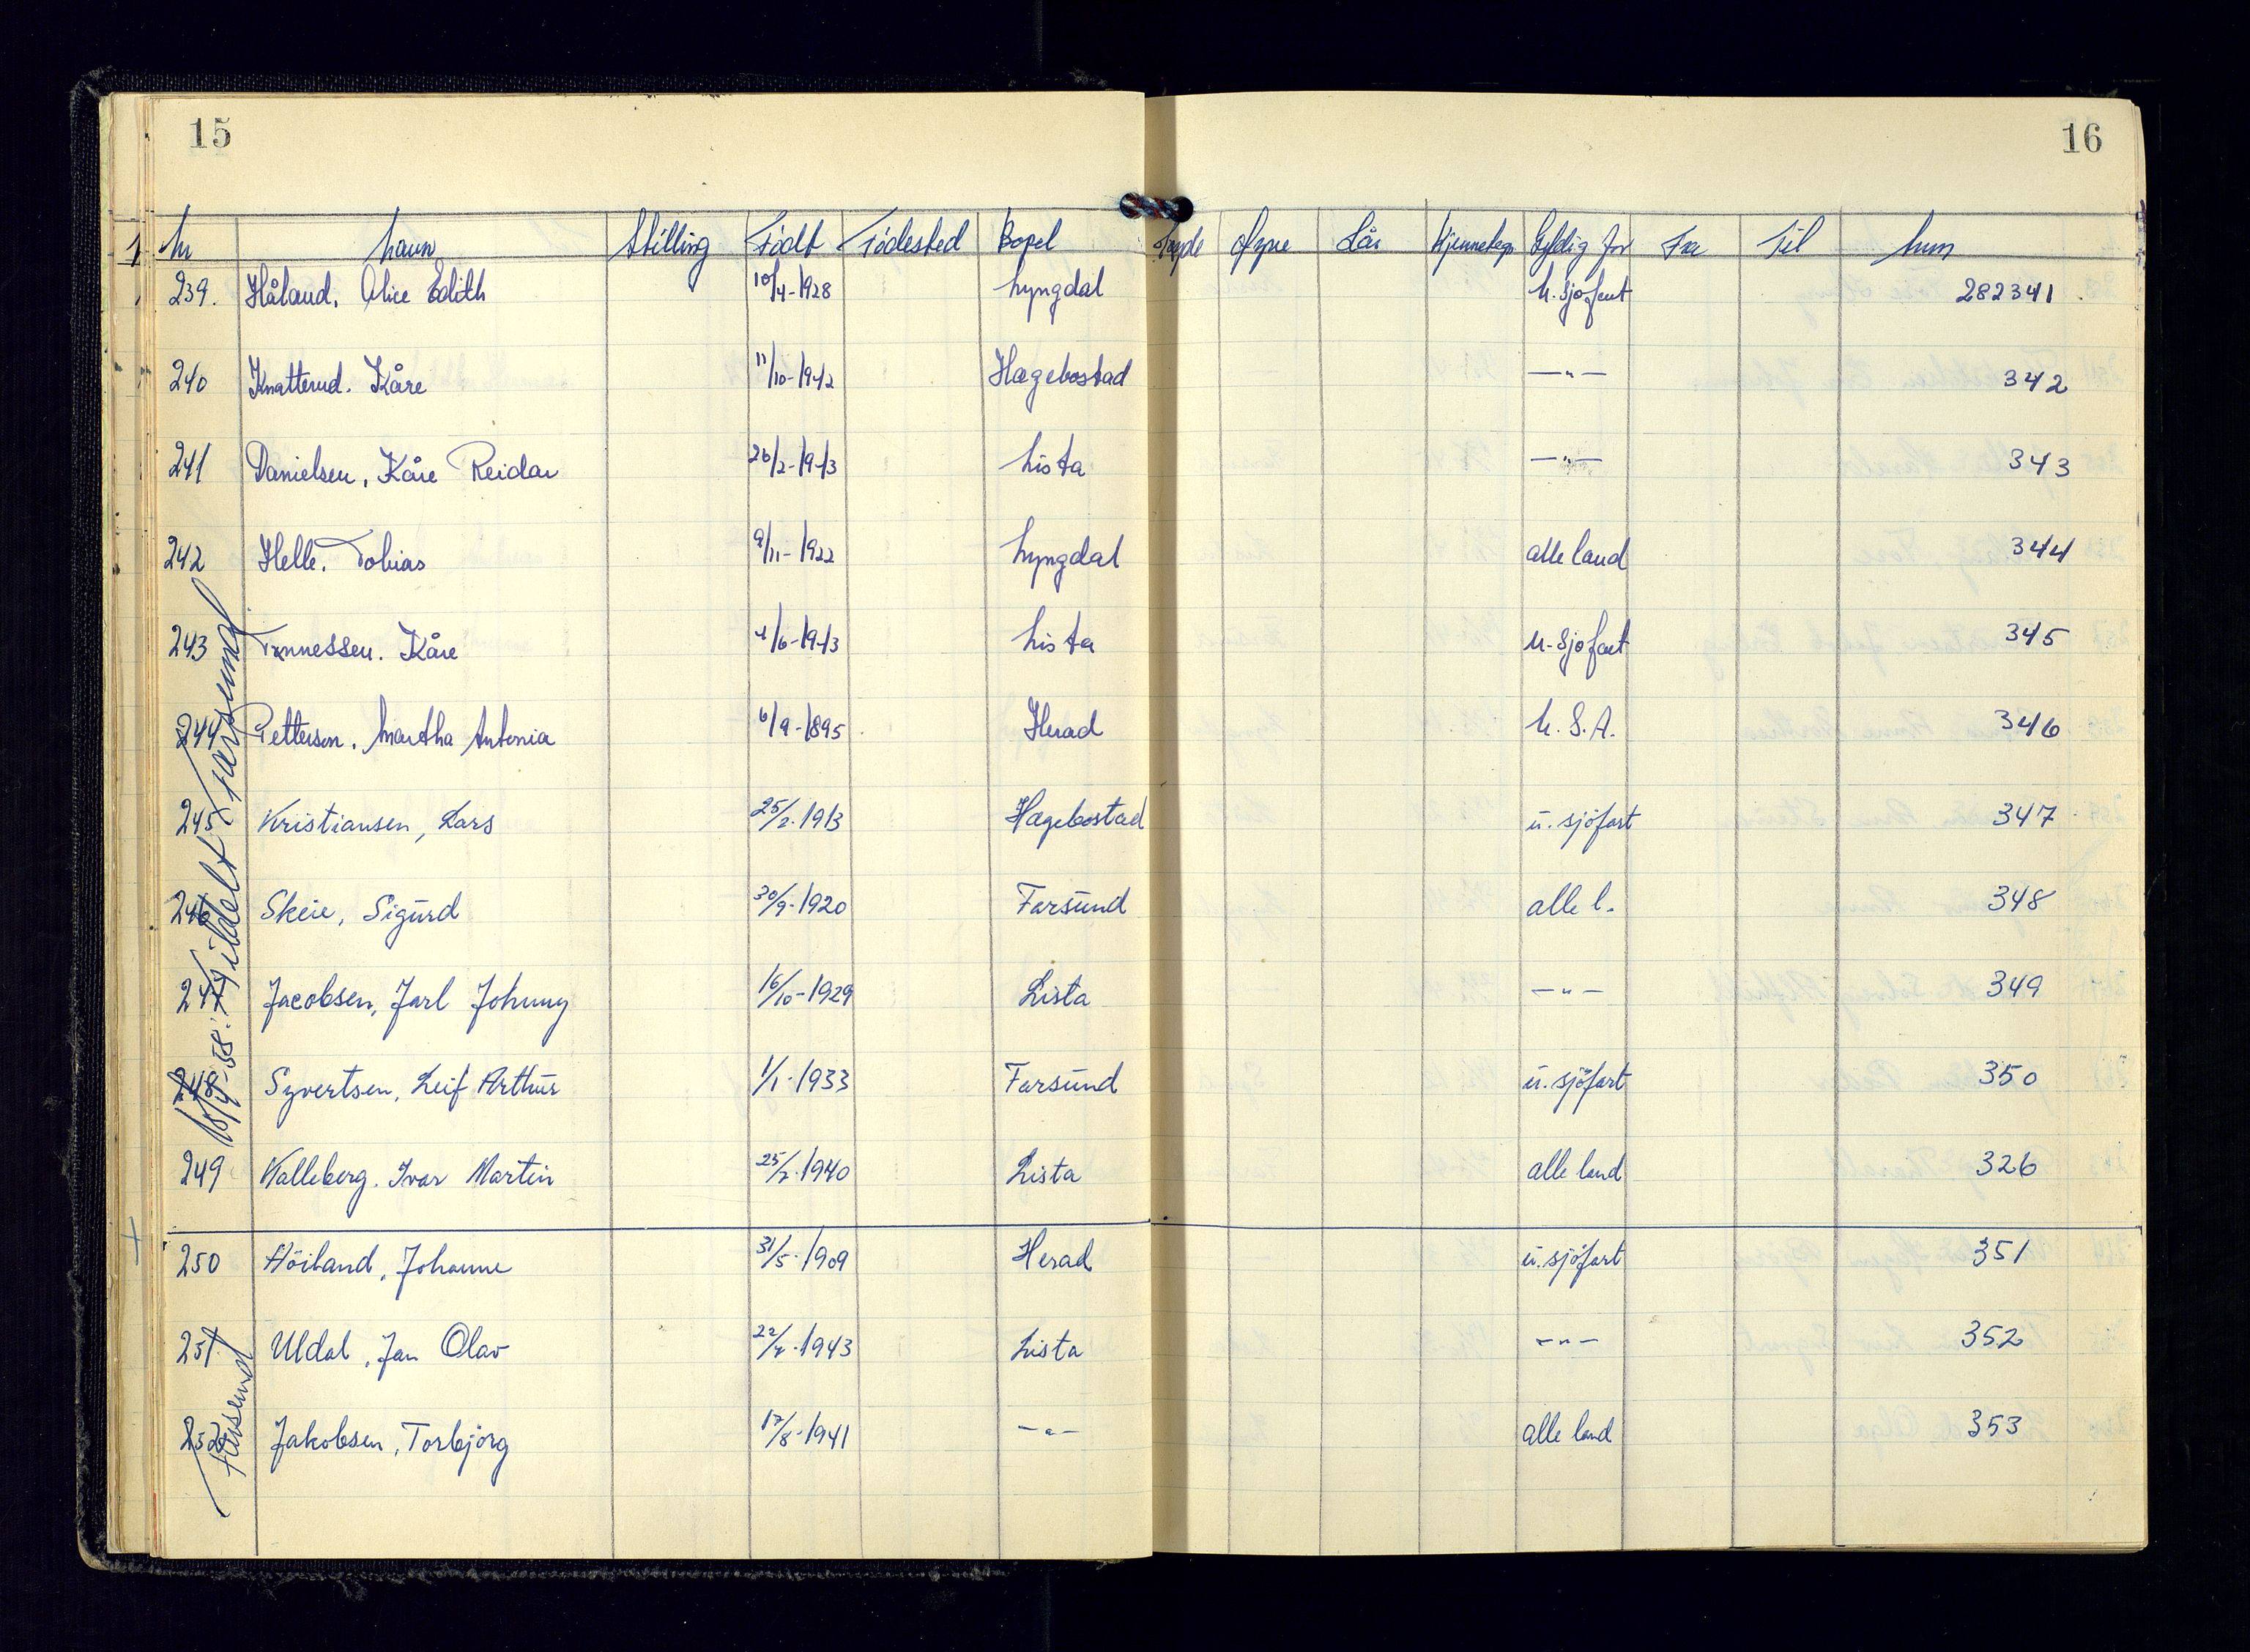 15
16
Nr Navn Stilling Födt Födested Bopel Høyde Øyne Hår Kjennetegn Gyldig for Fra Til Num
239. Håland, Alice Edith 10/4-1928 Lyngdal U. Sjøfart 282341
240 Knatterud. Kåre 11/10-1942 Hægebostad —"— 342
241 Danielsen, Kåre Reidar 26/2-1943 Lista —"— 343
242 Helle, Tobias 9/11-1922 Lyngdal alle land 344
243 Tønnessen. Kåre 4/6-1943 Lista U-Sjøfart 345
244 Pettersen, Martha Antonia 6/9-1895 Herad U.S.A. 346
245 Kristiansen, Lars 25/2-1913 Hægebostad u. sjöfart 347
246 Skeie, Sigurd 30/9-1920 Farsund alle l. 348
247 Jacobsen, Jarl Johnny 16/10-1929 Lista —"— 349
248 Syvertsen, Leif Arthur 1/1-1933 Farsund u. sjöfart 350
249 Kalleberg. Ivar Martin 25/2-1940 Lista alle land 326
250 Höiland, Johanne 31/5-1909 Herad u. sjöfart 351
251 Uldal, Jan Olav 22/4-1943 Lista —"— 352
252 Jakobsen, Torbjørg 17/8-1941 —"— alle land 353
Tildelt Farsund
Farsund